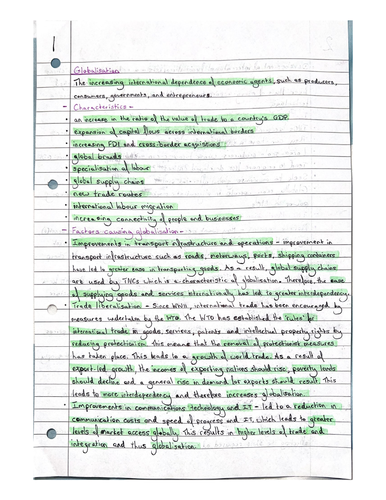 Globalisation
The increasing international dependence of economic agents, such as producers,
consumers, governments, and entrepreneurs.
- Characteristics -
• an increase in the ratio of the value of trade to a country's GDP
• expansion of capital flows across international borders
• increasing FDI and cross-border acquisitions
• global brands
• specialisation of labour
• global supply chains
• new trade routes
• international labour migration
• increasing connectivity of people and businesses
- Factors causing globalisation -
• Improvements in transport infrastructure and operations - improvement in
transport infrastructure such as roads, motorways, ports, shipping containers
have led to greater ease in transporting goods. As a result, global supply chains
are used by TNCs which is a characteristic of globalisation. Therefore, the ease
of supplying goods and services internationally has led to greater interdependency.
• Trade liberalisation - Since WWII, international trade has been encouraged by
measures undertaken by the WTO. The WTO has established the 'rules' for
international trade in goods, services, patents and intellectual property rights by
reducing protectionism. This means that the removal of protectionist measures
has taken place. This leads to a growth of world trade. As a result of
export-led growth, the incomes of exporting nations should rise, poverty levels
should decline and a general rise in demand for exports should result. This
leads to more interdependency and therefore increases globalisation.
• Improvements in communications technology and IT - led to a reduction in
communication costs and speed of progress and IT, which leads to greater
levels of market access globally. This results in higher levels of trade and
integration and thus globalisation.